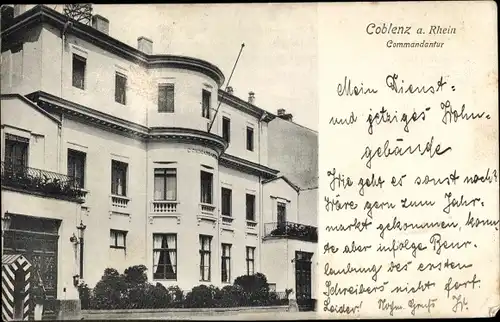 Coblenz a. Rhein
Commandantur
Mein Dienst-
und jetziges Wohn-
gebäude
Wie geht es sonst noch?
Wäre gern zum Jahr-
markt gekommen, konn
te aber infolge Beur-
laubung des ersten
Schreibers nicht fort.
Leider! Nochm. Gruß